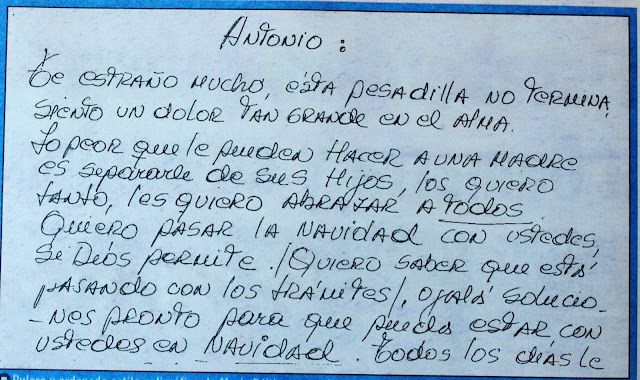 Antonio :
te estraño mucho, ésta pesadilla no termina,
siento un dolor tan grande en el alma.
Lo peor que le pueden Hacer a una madre
es separarle de sus Hijos, los quiero
tanto, les quiero abrazar a todos
Quiero pasar la Navidad con ustedes,
si Diós permite. / Quiero saber que está
pasando con los trámites /, ojalá solucio-
-nes pronto para que pueda estar con
ustedes en Navidad. todos los días le